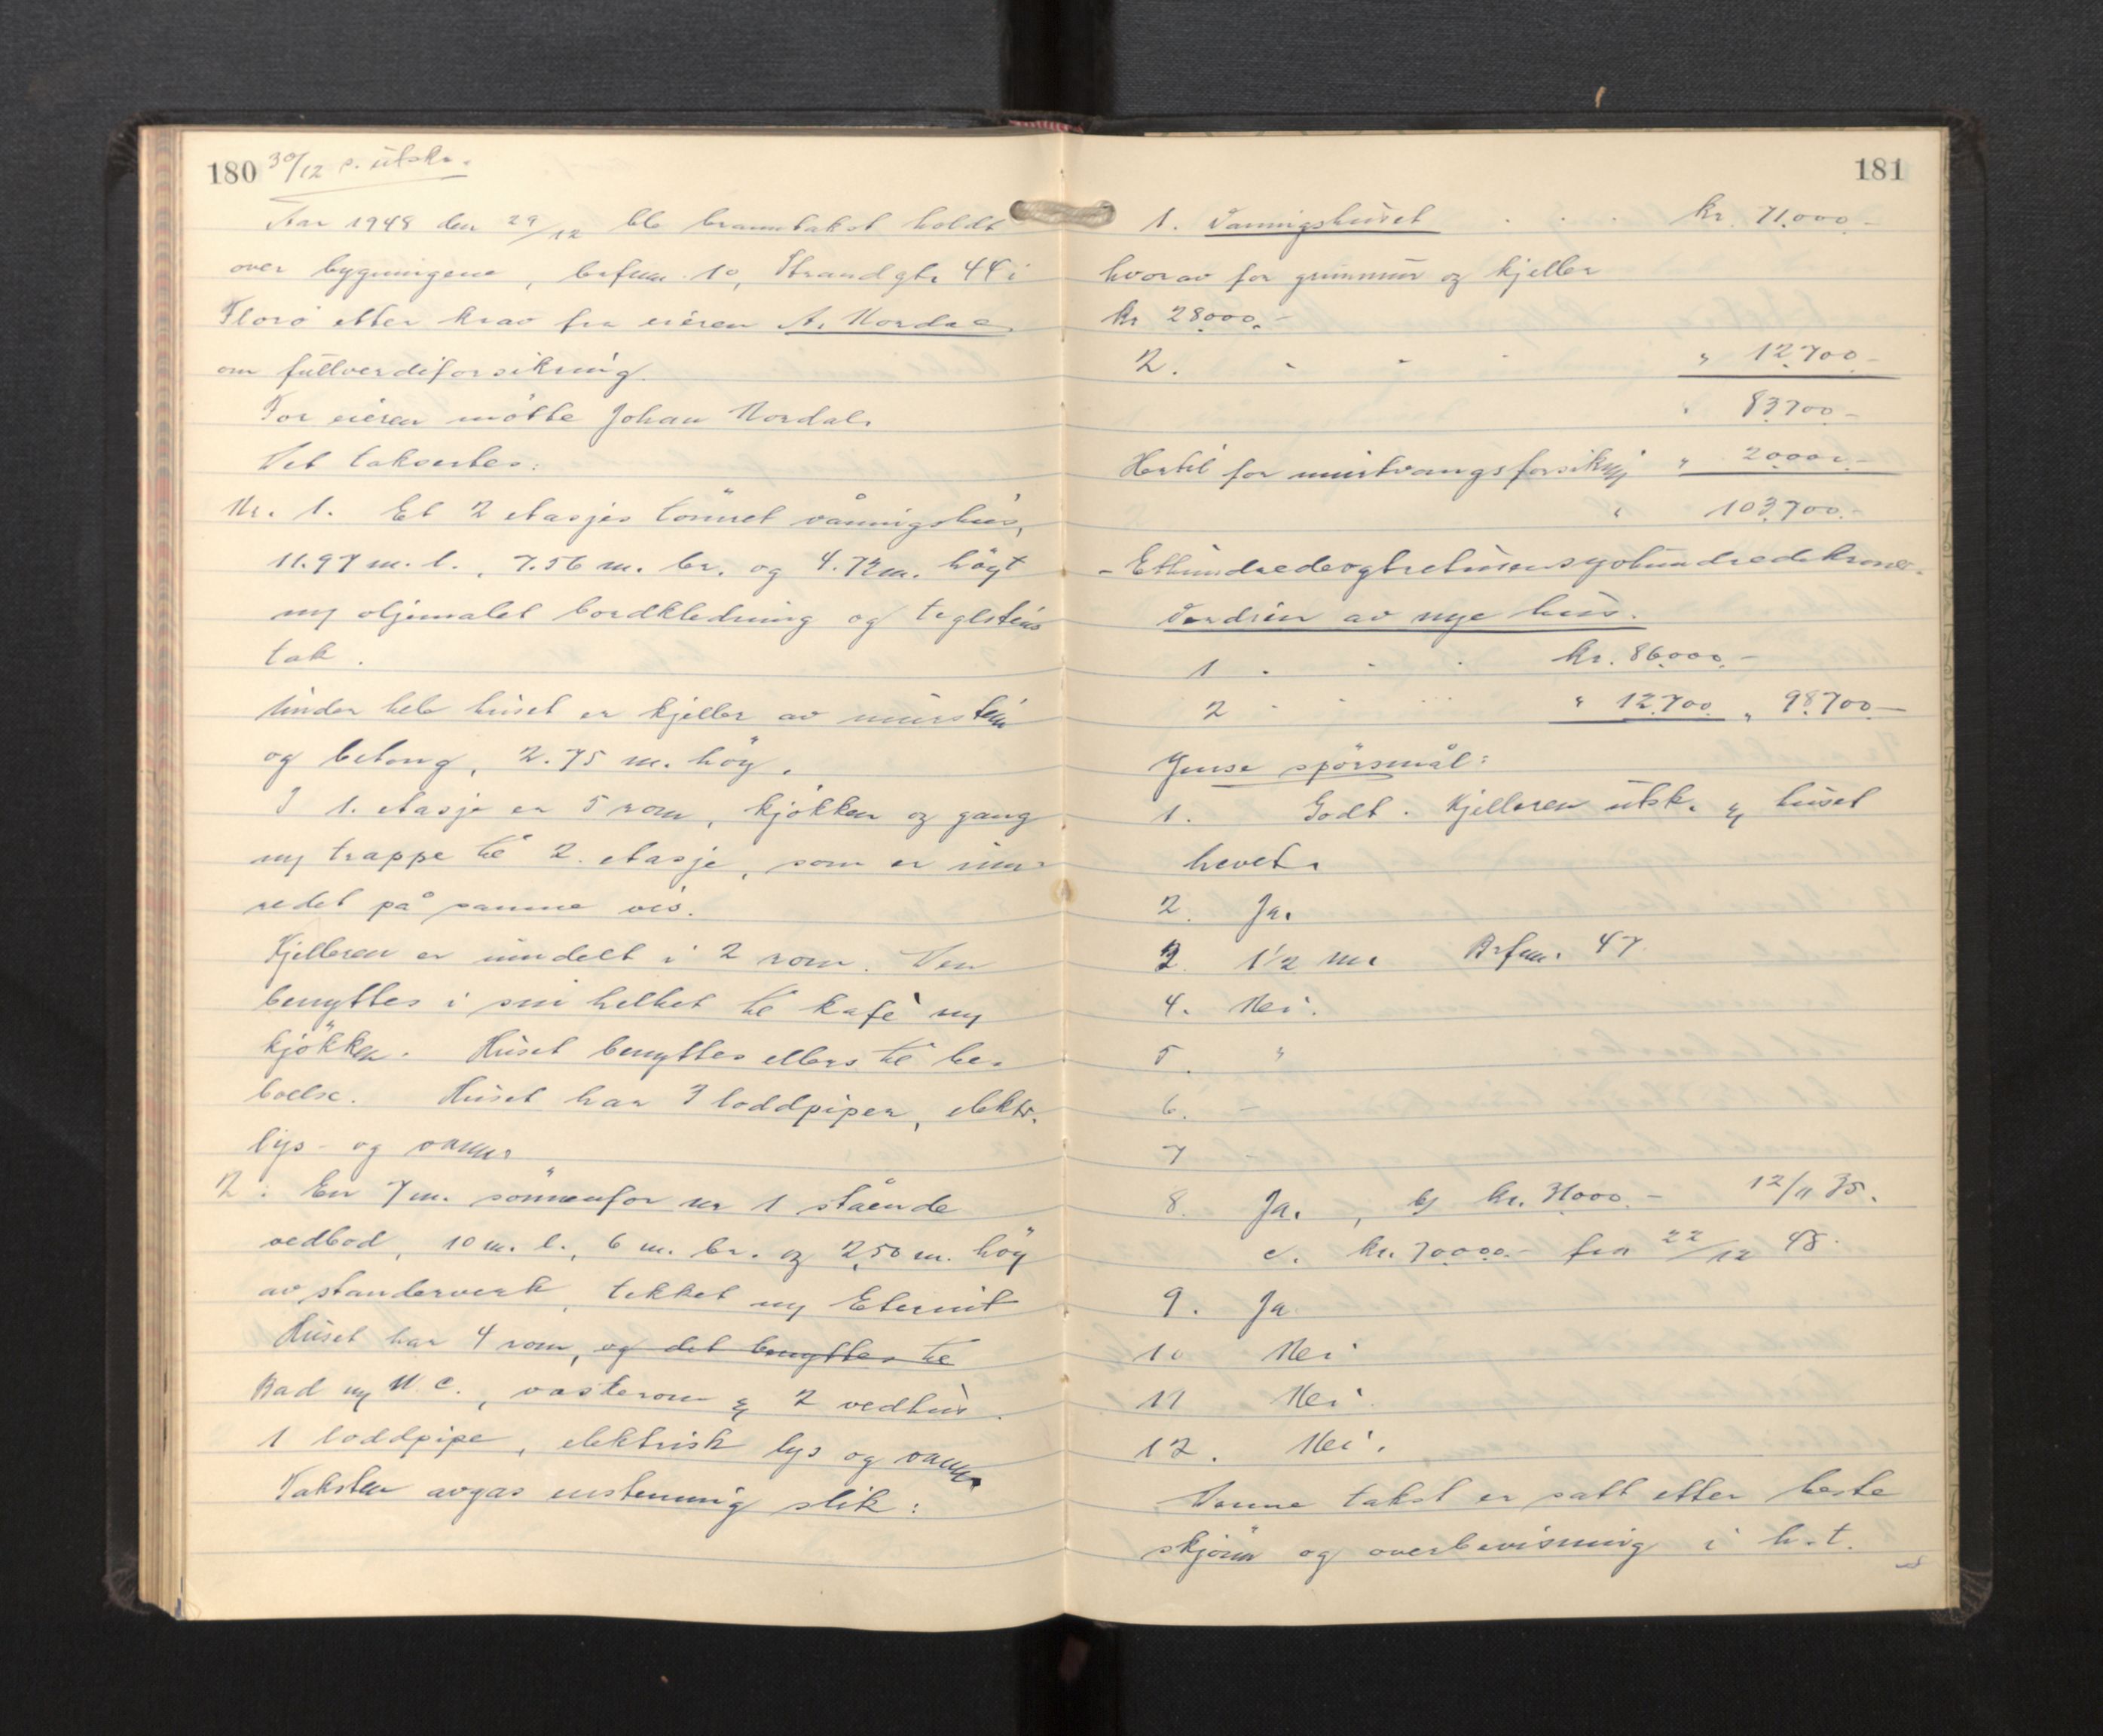 180 30/12 s. utskr.
Aar 1948 den 29/12 ble branntakst holdt
over bygningene, brfnr. 10, Strandgt. 44 i
Florø etter krav fra eieren A. Nordal
om fullverdiforsikring.
For eieren møtte Johan Nordal.
Det takseres:
Nr. 1. Et 2 etasjes tömret våningshus,
11.97 m. l., 7.56 m. br. og 4.72 m. högt
m/ oljemalet bordkledning og teglsteins
tak.
Under hele huset er kjeller av murstein
og betong, 2.75 m. höy.
I 1. etasje er 5 rom, kjökken og gang
m/ trappe til 2. etasje, som er inn-
redet på samme vis.
Kjelleren er inndelt i 2 rom. Den
benyttes i sin helhet til kafè m/
kjökken. Huset benyttes ellers til be-
boelse. Huset har 3 loddpiper, elektr.
lys- og vann.
2. En 7 m. sönnenfor nr 1 stående
vedbod, 10 m. l., 6 m. br. og 2,50 m. höy
av standerverk, tekket m/ Eternit
Huset har 4 rom, og det benyttes til
Bad m/ W.C., vaskerom & 2 vedhus.
1 loddpipe, elektrisk lys og vann.
Taksten avgas enstemmig slik:
181
1. Vaningshuset . . . kr. 71.000.-
hvorav for grunnmur og kjeller
kr 28000.-
2. - - - " 12.700.-
" 83700-
Hertil for murtvangsforsikring " 20000.-
" 103.700.-
- Etthundredeogtretusensyvhundredekroner.
Verdien av nye hus.
1 . . . kr. 86000.-
2 - - - " 12.700 " 98.700-
Yms. spörsmål:
1. Godt. Kjelleren utsk. & huset
hevet.
2. Ja.
3. 1½ m. Brfnr. 47.
4. Nei.
5. "
6. -
7 -
8. Ja. , b/ kr. 31000.- 12/11 35.
c. kr. 70000.- fra 22/12 48.
9. Ja
10 Nei
11 Nei
12. Nei.
Denne takst er satt etter beste
skjönn og overbevisning i h.t.